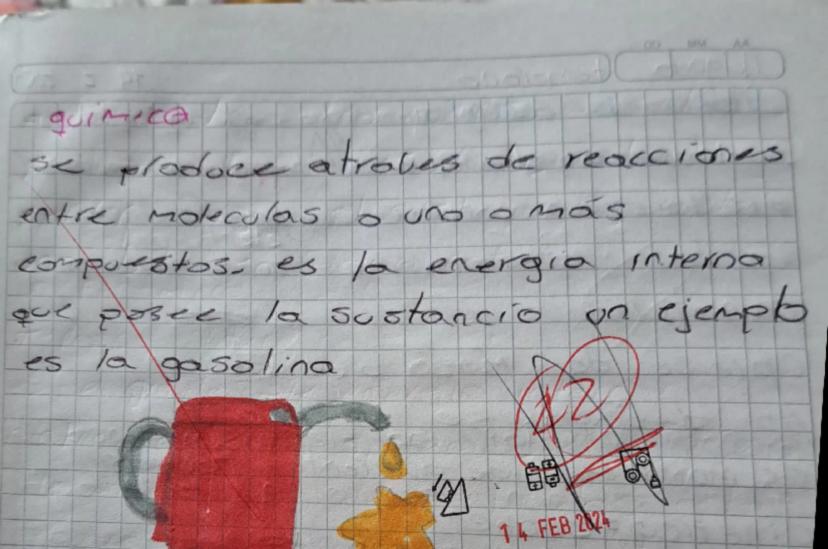 DD MM AA
química
se produce atrabes de reacciones
entre moleculas o uno o más
compuestos. es la energia interna
que posee la sustancia un ejemplo
es la gasolina
12
14 FEB 2024